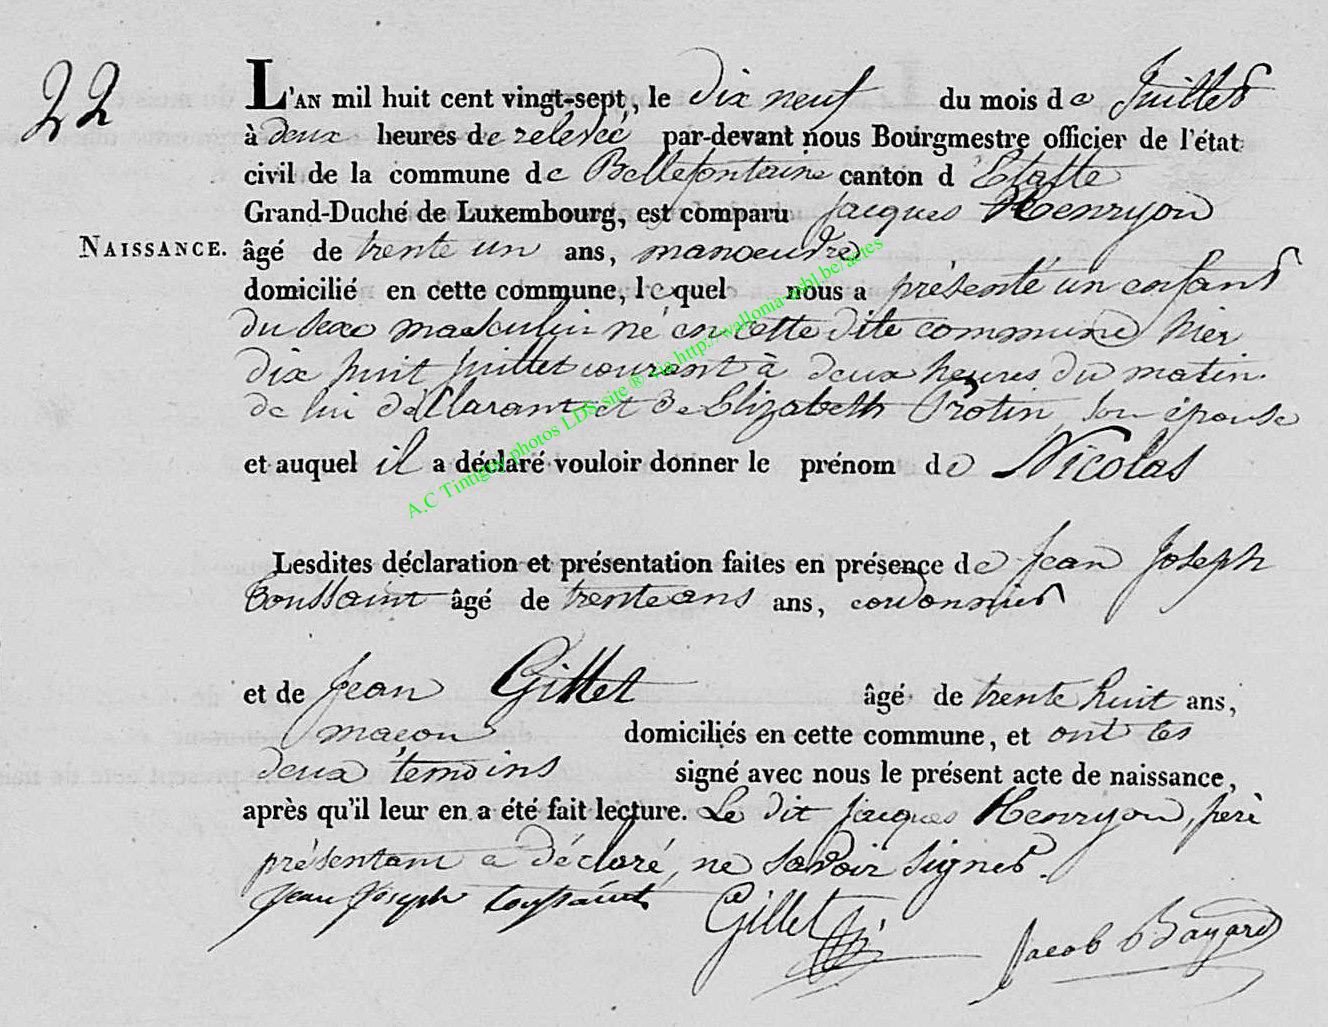 22
L'AN mil huit cent vingt-sept, le dix neuf du mois de Juillet
à deux heures de relevée par-devant nous Bourgmestre officier de l'état
civil de la commune de Bellefontaine canton d'Etalle
Grand-Duché de Luxembourg, est comparu jacques Henryon
NAISSANCE. âgé de trente un ans, manoeuvre
domicilié en cette commune, lequel nous a présenté un enfant
du sexe masculin né en cette dite commune hier
dix huit juillet courant à deux heures du matin
de lui déclarant et de Elizabeth Protin, son épouse
et auquel il a déclaré vouloir donner le prénom de Nicolas
Lesdites déclaration et présentation faites en présence de jean joseph
toussaint âgé de trente ans ans, cordonnier
et de jean Gillet âgé de trente huit ans,
maçon domiciliés en cette commune, et ont les
deux témoins signé avec nous le présent acte de naissance,
après qu'il leur en a été fait lecture. Le dit jacques Henryon, père
présentant a déclaré ne savoir signer.
jean joseph toussaint Gillet Jacob Bayard
A.C Tintigny photos LDS site ® via http://wallonia-asbl.be/actes